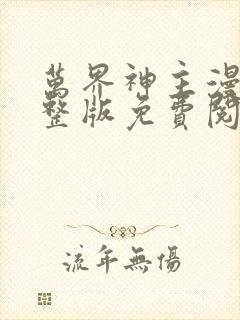 萬界神主漫
整版免費閱
流年無傷